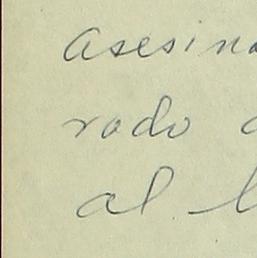 asesina
rodo
al